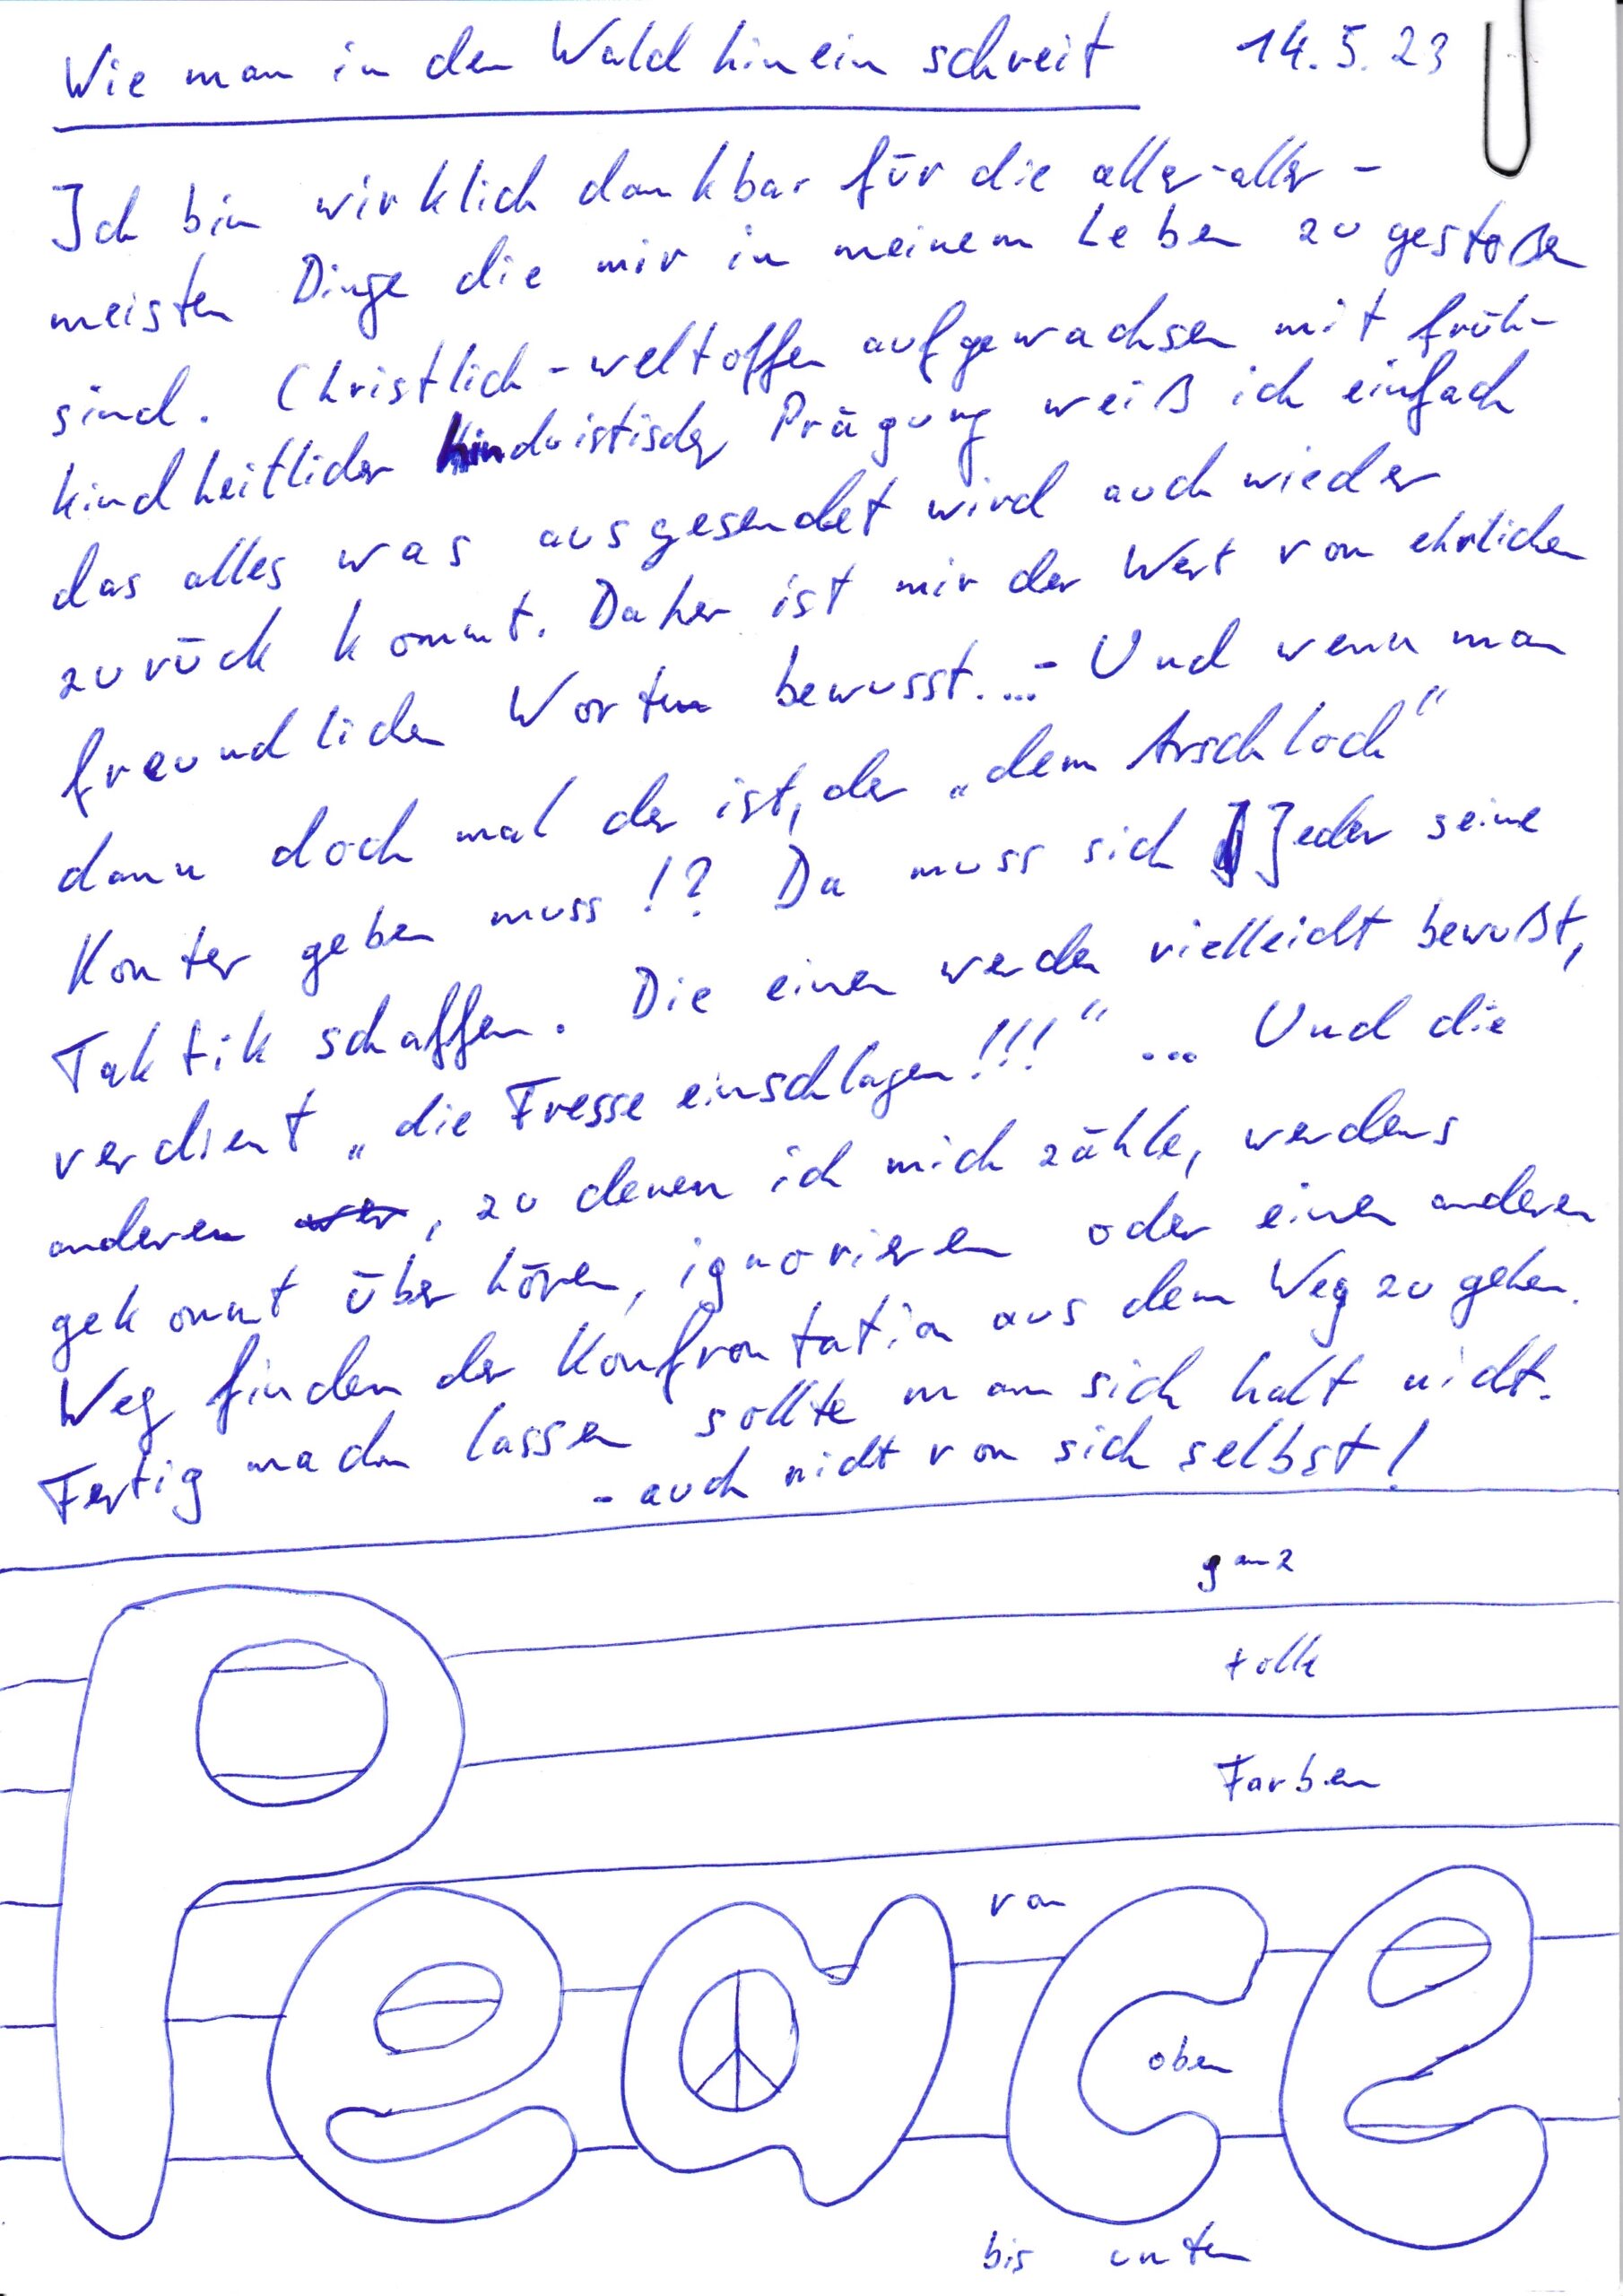 Wie man in den Wald hinein schreit 14.5.23
Ich bin wirklich dankbar für die aller-aller-
meisten Dinge die mir in meinem Leben zugestoßen
sind. Christlich-weltoffen aufgewachsen mit früh-
kindheitlicher hinduistischer Prägung weiß ich einfach
das alles was ausgesendet wird auch wieder
zurück kommt. Daher ist mir der Wert von ehrlichen
freundlichen Worten bewusst. ...- Und wenn man
dann doch mal der ist, der „dem Arschloch"
Konter geben muss!? Da muss sich Jeder seine
Taktik schaffen. Die einen werden vielleicht bewußt,
verdient „die Fresse einschlagen!!!" ... Und die
anderen wer, zu denen ich mich zähle, werdens
gekonnt überhören, ignorieren oder einen anderen
Weg finden der Konfrontation aus dem Weg zu gehen.
Fertig machen lassen sollte man sich halt nicht.
- auch nicht von sich selbst!
ganz
tolle
Farben
von
Peace
oben
bis unten